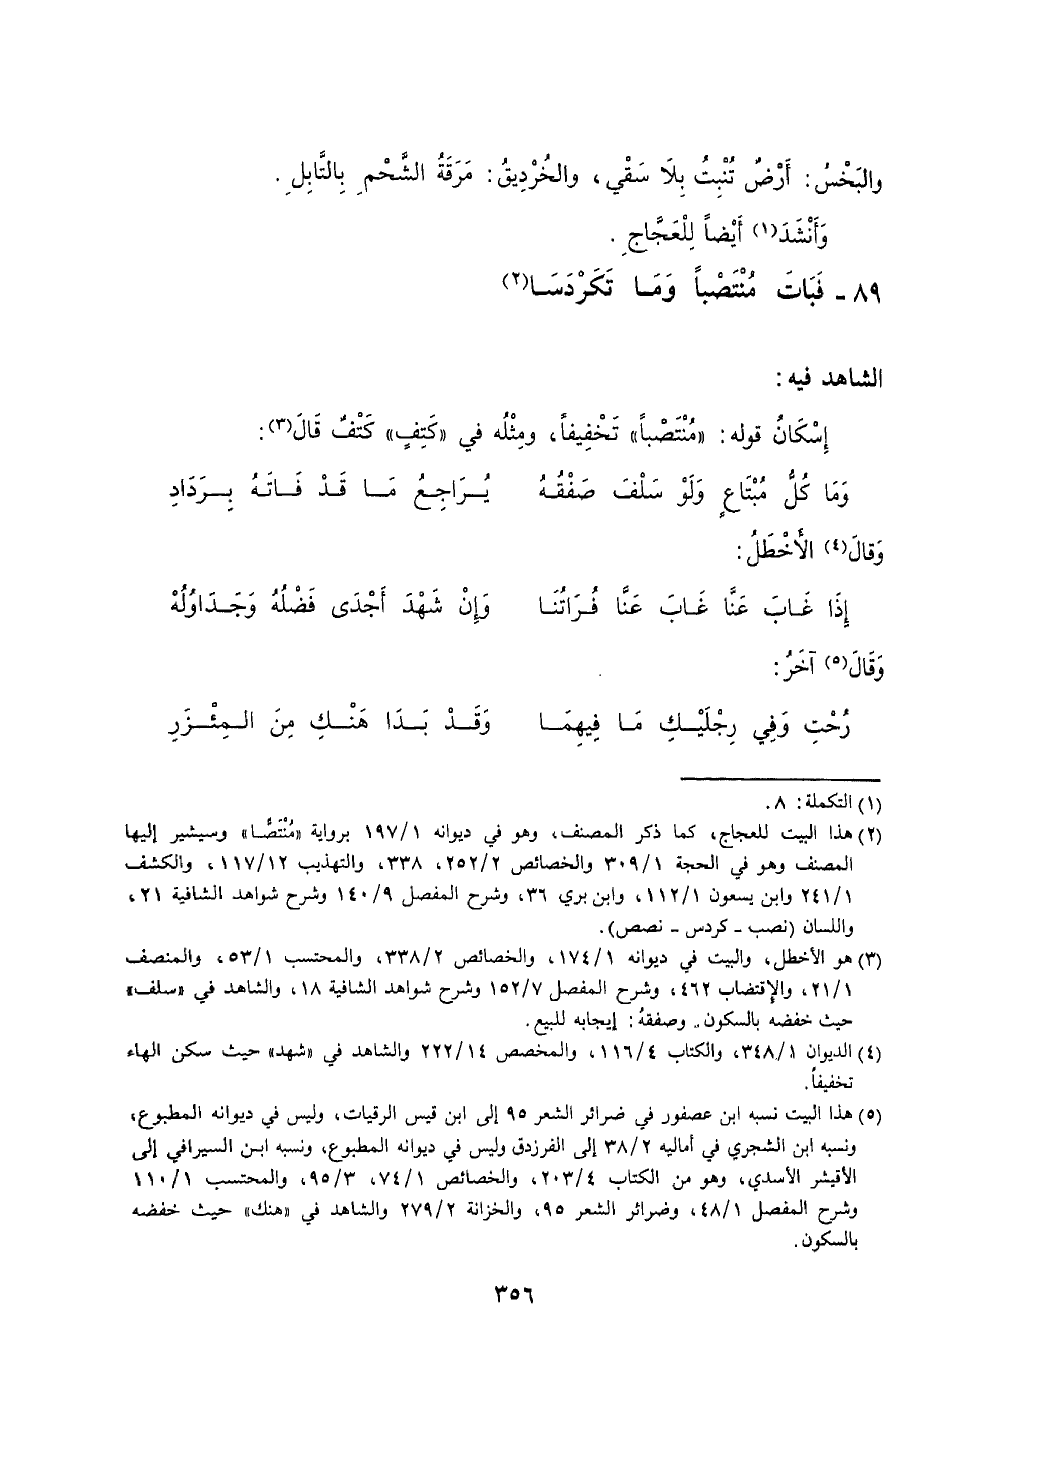 والبَخْسُ: أَرْضٌ تُنْبِتُ بِلَا سَقْي، والخُرْدِيقُ: مَرَقَةُ الشَّحْمِ بِالتَّابِلِ.
وَأَنْشَدَ(١) أَيْضاً لِلْعَجَّاجِ.
٨٩ - فَبَاتَ مُنْتَصْباً وَمَا تَكَرْدَسَا(٢)
الشاهد فيه:
إِسْكَانُ قوله: «مُنْتَصْباً» تَخْفِيفاً، ومِثْلُه في «كَتِفٍ» كَتْفٌ قَالَ(٣):
وَمَا كُلُّ مُبْتَاعٍ وَلَوْ سَلْفَ صَفْقُهُ يُرَاجِعُ مَا قَدْ فَاتَهُ بِرَدَادِ
وَقالَ(٤) الأَخْطَلُ:
إِذَا غَابَ عَنَّا غَابَ عَنَّا فُرَاتُنَا وَإِنْ شَهْدَ أَجْدَى فَضْلُهُ وَجَدَاوُلُهْ
وَقَالَ(٥) آخَرُ:
رُحْتِ وَفِي رِجْلَيْكِ مَا فِيهِمَا وَقَدْ بَدَا هَنْكِ مِنَ المِئْزَرِ
(١) التكملة: ٨.
(٢) هذا البيت للعجاج، كما ذكر المصنف، وهو في ديوانه ١٩٧/١ برواية «مُنْتَصًّا» وسيشير إليها
المصنف وهو في الحجة ٣٠٩/١ والخصائص ٢٥٢/٢، ٣٣٨، والتهذيب ١١٧/١٢، والكشف
٢٤١/١ وابن يسعون ١١٢/١، وابن بري ٣٦، وشرح المفصل ١٤٠/٩ وشرح شواهد الشافية ٢١،
واللسان (نصب - كردس - نصص).
(٣) هو الأخطل، والبيت في ديوانه ١٧٤/١، والخصائص ٣٣٨/٢، والمحتسب ٥٣/١، والمنصف
٢١/١، والإقتضاب ٤٦٢، وشرح المفصل ١٥٢/٧ وشرح شواهد الشافية ١٨، والشاهد في «سلف»
حيث خفضه بالسكون. وصفقهُ: إيجابه للبيع.
(٤) الديوان ٣٤٨/١، والكتاب ١١٦/٤، والمخصص ٢٢٢/١٤ والشاهد في «شهد» حيث سكن الهاء
تخفيفاً.
(٥) هذا البيت نسبه ابن عصفور في ضرائر الشعر ٩٥ إلى ابن قيس الرقيات، وليس في ديوانه المطبوع،
ونسبه ابن الشجري في أماليه ٣٨/٢ إلى الفرزدق وليس في ديوانه المطبوع، ونسبه ابن السيرافي إلى
الأقيشر الأسدي، وهو من الكتاب ٢٠٣/٤، والخصائص ٧٤/١، ٩٥/٣، والمحتسب ١١٠/١
وشرح المفصل ٤٨/١، وضرائر الشعر ٩٥، والخزانة ٢٧٩/٢ والشاهد في «هنك» حيث خفضه
بالسكون.
٣٥٦